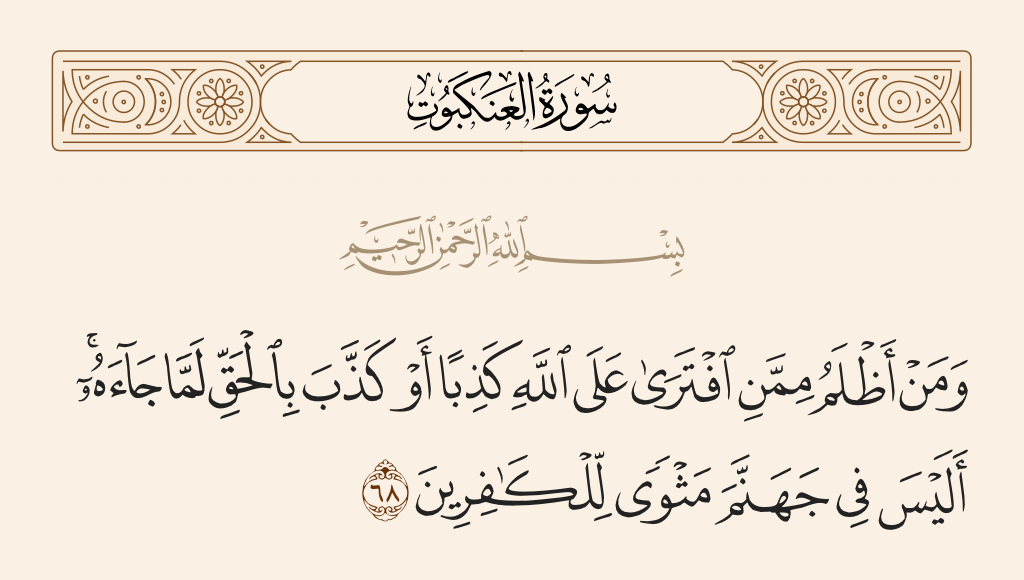 سُورَةُ العَنكَبُوتِ
بِسْمِ ٱللَّهِ ٱلرَّحْمَٰنِ ٱلرَّحِيمِ
وَمَنْ أَظْلَمُ مِمَّنِ ٱفْتَرَىٰ عَلَى ٱللَّهِ كَذِبًا أَوْ كَذَّبَ بِٱلْحَقِّ لَمَّا جَآءَهُۥٓ ۚ
أَلَيْسَ فِى جَهَنَّمَ مَثْوًى لِّلْكَـٰفِرِينَ ٦٨